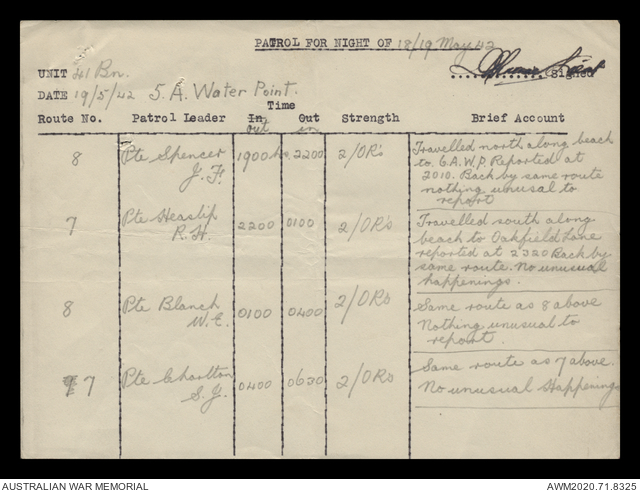 PATROL FOR NIGHT OF 18/19 May 42
UNIT 41 Bn. Signed
DATE 19/5/42 5. A. Water Point.
Time
Route No. Patrol Leader In Out Strength Brief Account
out in
8 Pte Spencer J. F. 1900 hrs. 2200 2/OR's Travelled north along beach
to 6A.W.P. Reported at
2010. Back by same route
nothing unusal to
report
7 Pte Heaslip R. H. 2200 0100 2/OR's Travelled south along
beach to Oakfield Lane
reported at 2320 Back by
same route. No unusual
happenings.
8 Pte Blanch W. E. 0100 0400 2/ORs Same route as 8 above
Nothing unusual to
report.
7 Pte Charlton S. J. 0400 0630 2/ORs Same route as 7 above.
No unusual Happenings
AUSTRALIAN WAR MEMORIAL AWM2020.71.8325